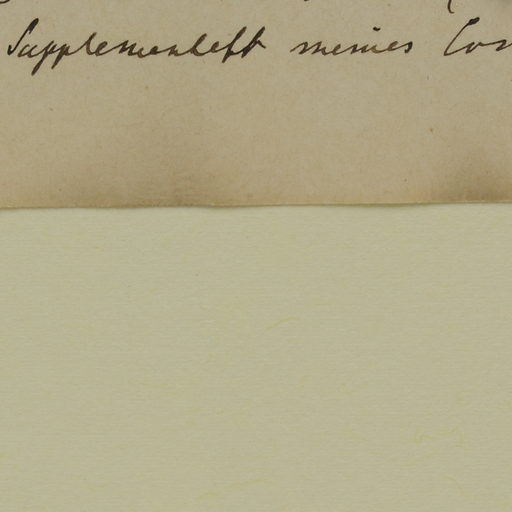 Supplementheft meines